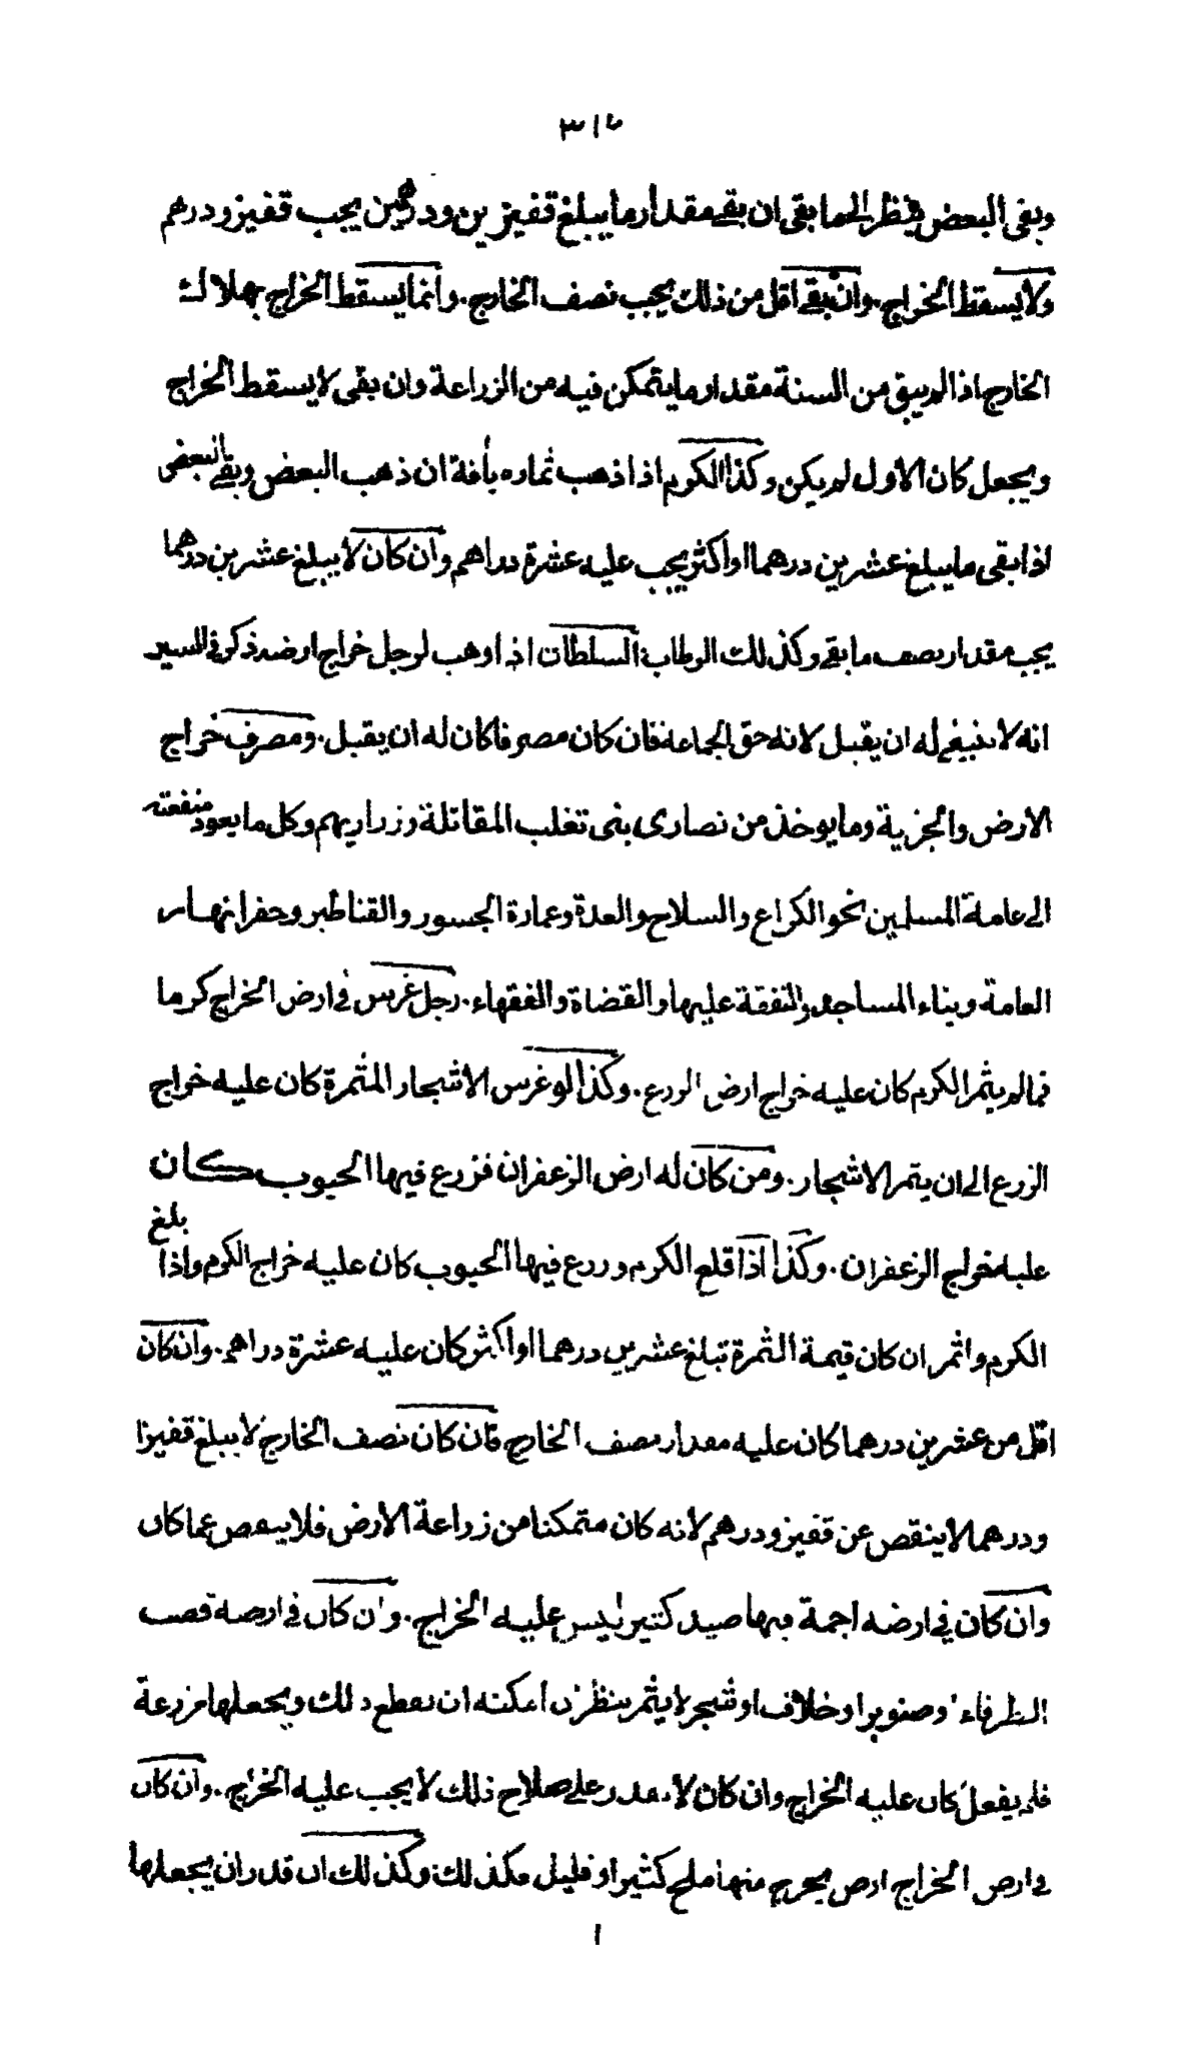 ٣١٢
وبقى البعض ينظر الى ما بقى ان بقى مقدار ما يبلغ قفيزين ودرهمين يجب قفيز ودرهم
ولا يسقط الخراج. وان بقى اقل من ذلك يجب نصف الخارج. وانما يسقط الخراج بهلاك
الخارج اذا لم يبق من السنة مقدار ما يتمكن فيه من الزراعة وان بقى لا يسقط الخراج
ويجعل كان الاول لم يكن وكذا الكرم اذا ذهب ثماره بأفة ان ذهب البعض وبقى البعض
اذا بقى ما يبلغ عشرين درهما او اكثر يجب عليه عشرة دراهم وان كان لا يبلغ عشرين درهما
يجب مقدار نصف ما بقى وكذلك الرطاب السلطان اذا وهب لرجل خراج ارضه ذكر في السير
انه لا ينبغي له ان يقبل لانه حق الجماعة فان كان مصرفا كان له ان يقبل. ومصرف خراج
الارض والجزية وما يوخذ من نصارى بنى تغلب المقاتلة وزراريهم وكل ما يعود منفعته
الى عامة المسلمين نحو الكراع والسلاح والعدة وعمارة الجسور والقناطير وحفر انهار
العامة وبناء المساجد والنفقة عليها والقضاة والفقهاء. رجل غرس في ارض الخراج كرما
فما لم يثمر الكرم كان عليه خراج ارض الزرع. وكذا لو غرس الاشجار المثمرة كان عليه خراج
الزرع الى ان يتمر الاشجار. ومن كان له ارض الزعفران فزرع فيها الحبوب كان
عليه خراج الزعفران. وكذا اذا قلع الكرم وزرع فيها الحبوب كان عليه خراج الكرم واذا بلغ
الكرم واثمر ان كان قيمة الثمرة تبلغ عشرين درهما او اكثر كان عليه عشرة دراهم. وان كان
اقل من عشرين درهما كان عليه مقدار نصف الخارج فان كان نصف الخارج لا يبلغ قفيزا
ودرهما لا ينقص عن قفيز ودرهم لانه كان متمكنا من زراعة الارض فلا ينقص عما كان
وان كان في ارضه اجمة فيها صيد كثير ليس عليه الخراج. وان كان في ارضه قصب
الطرفاء وصنوبر او خلاف او شجر لا يثمر ينظر ان امكنه ان يقطع ذلك ويجعلها مزرعة
فلم يفعل كان عليه الخراج وان كان لا يقدر على صلاح ذلك لا يجب عليه الخراج. وان كان
في ارض الخراج ارض يخرج منها ملح كثير او قليل فكذلك وكذلك ان قدر ان يجعلها
١